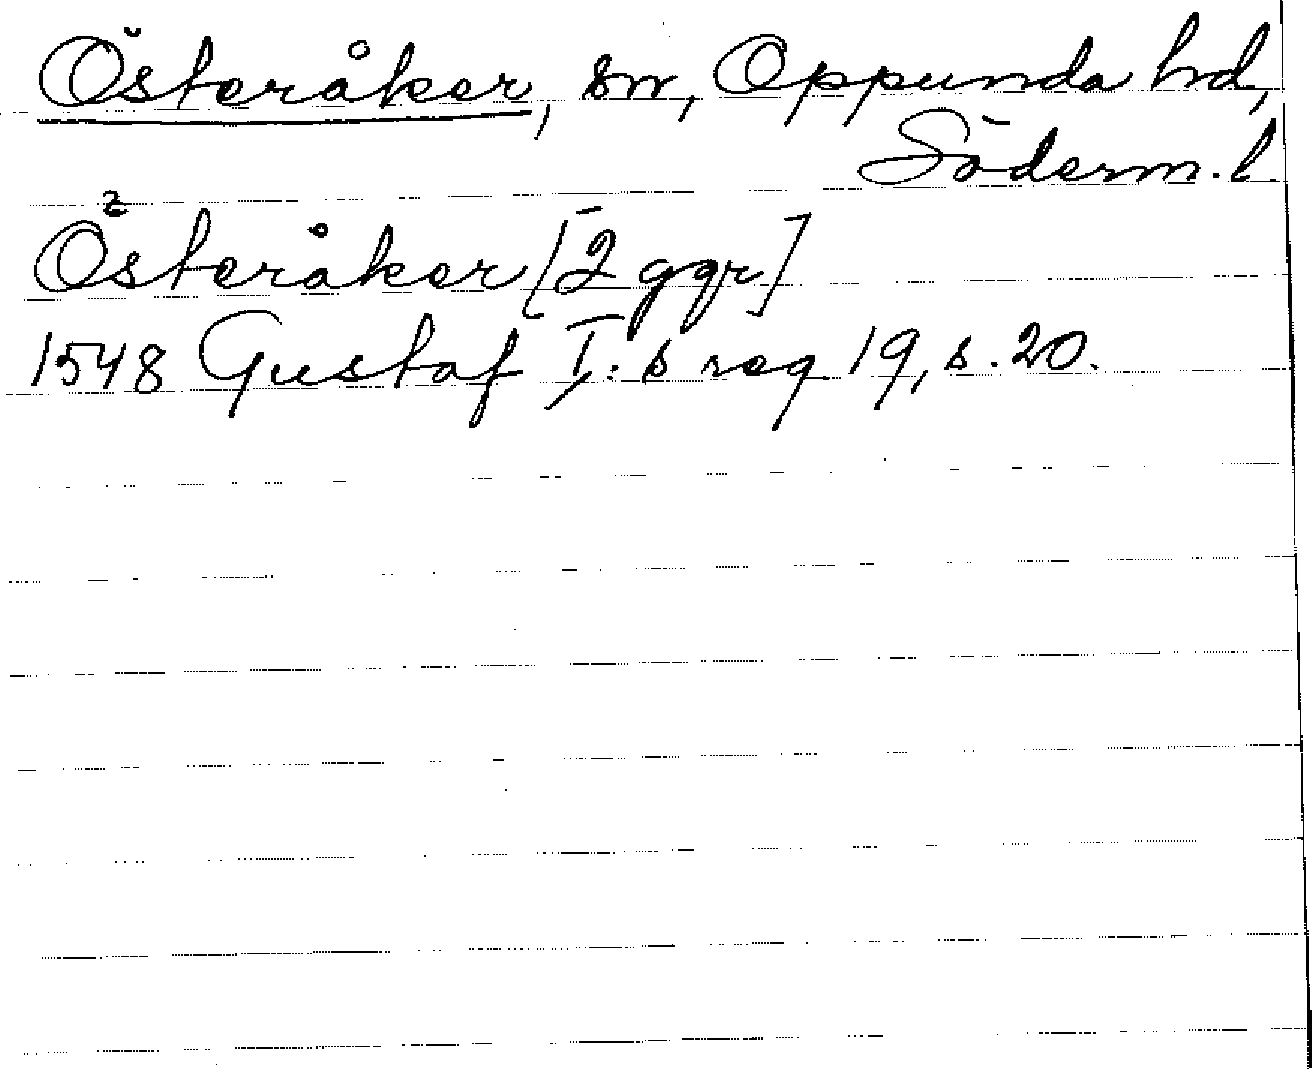 Österåker, sn, Oppunda hd,
Söderm. l.
Österåker [2 ggr]
1548 Gustaf I:s reg 19, s. 20.